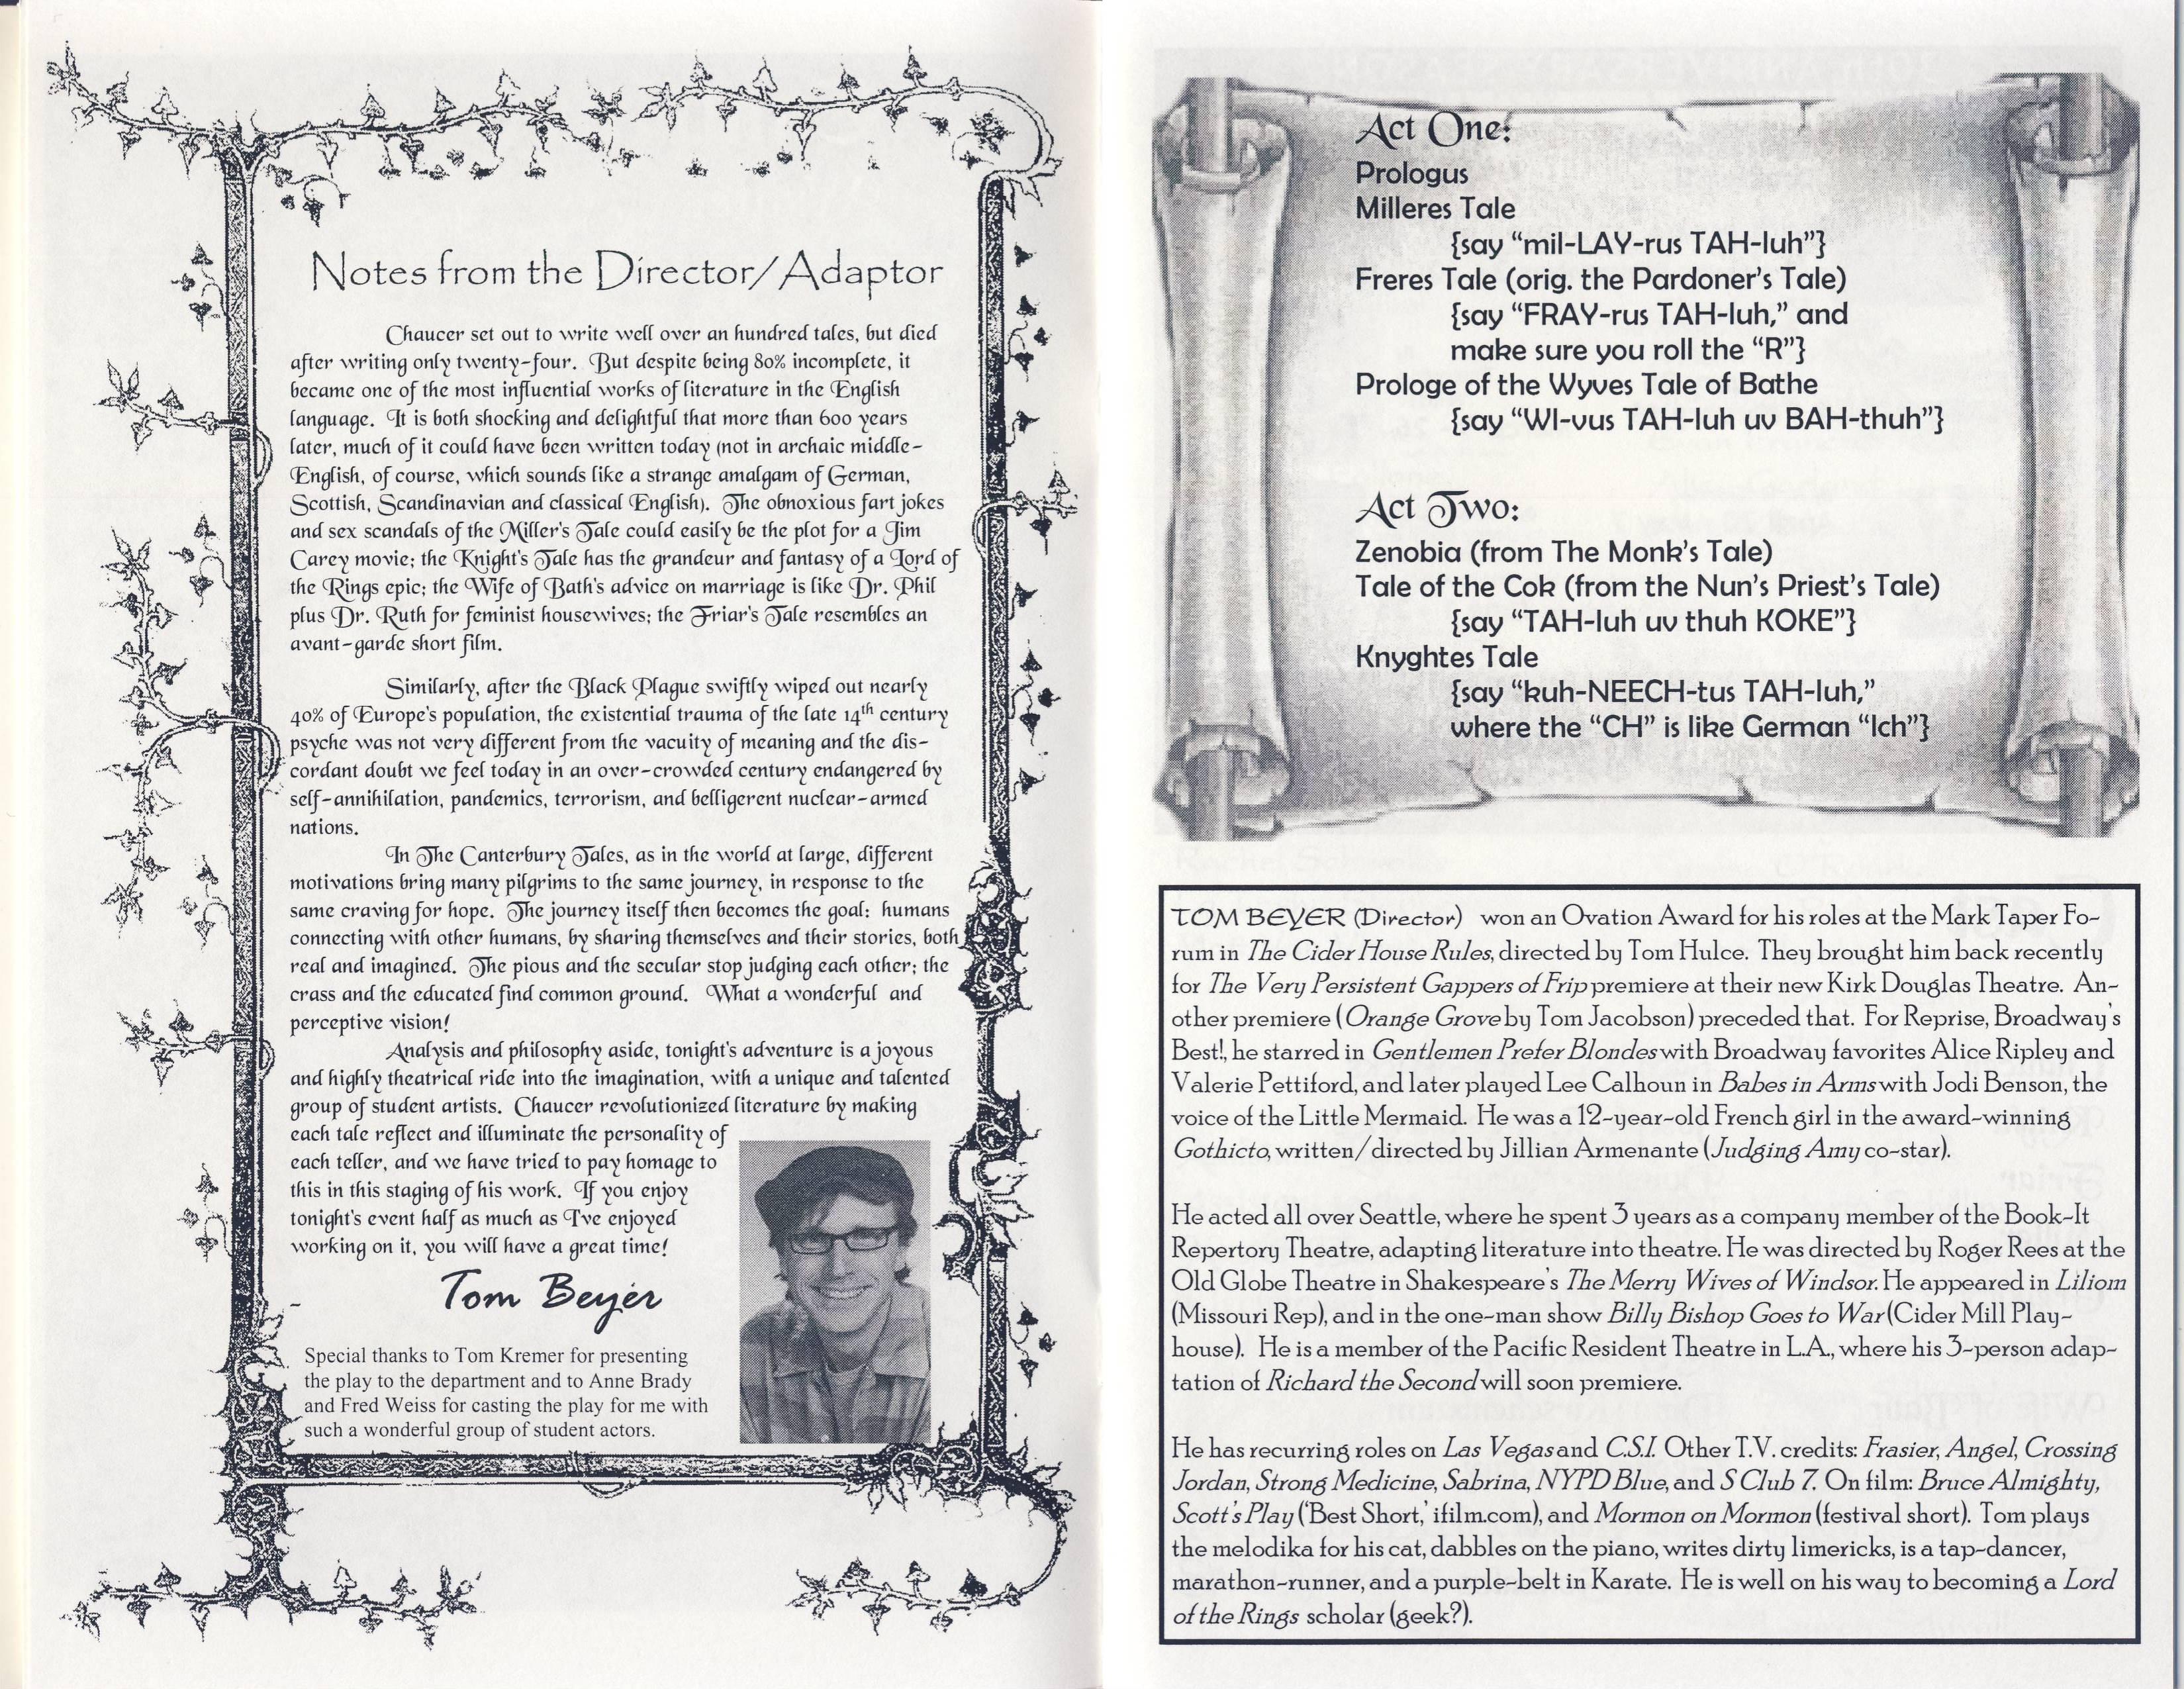 Notes from the Director/Adaptor
Chaucer set out to write well over an hundred tales, but died
after writing only twenty-four. But despite being 80% incomplete, it
became one of the most influential works of literature in the English
language. It is both shocking and delightful that more than 600 years
later, much of it could have been written today (not in archaic middle-
English, of course, which sounds like a strange amalgam of German,
Scottish, Scandinavian and classical English). The obnoxious fart jokes
and sex scandals of the Miller's Tale could easily be the plot for a Jim
Carey movie; the Knight's Tale has the grandeur and fantasy of a Lord of
the Rings epic; the Wife of Bath's advice on marriage is like Dr. Phil
plus Dr. Ruth for feminist housewives; the Friar's Tale resembles an
avant-garde short film.
Similarly, after the Black Plague swiftly wiped out nearly
40% of Europe's population, the existential trauma of the late 14th century
psyche was not very different from the vacuity of meaning and the dis-
cordant doubt we feel today in an over-crowded century endangered by
self-annihilation, pandemics, terrorism, and belligerent nuclear-armed
nations.
In The Canterbury Tales, as in the world at large, different
motivations bring many pilgrims to the same journey, in response to the
same craving for hope. The journey itself then becomes the goal: humans
connecting with other humans, by sharing themselves and their stories, both
real and imagined. The pious and the secular stop judging each other; the
crass and the educated find common ground. What a wonderful and
perceptive vision!
Analysis and philosophy aside, tonight's adventure is a joyous
and highly theatrical ride into the imagination, with a unique and talented
group of student artists. Chaucer revolutionized literature by making
each tale reflect and illuminate the personality of
each teller, and we have tried to pay homage to
this in this staging of his work. If you enjoy
tonight's event half as much as I've enjoyed
working on it, you will have a great time!
Tom Beyer
Special thanks to Tom Kremer for presenting
the play to the department and to Anne Brady
and Fred Weiss for casting the play for me with
such a wonderful group of student actors.
Act One:
Prologus
Milleres Tale
{say “mil-LAY-rus TAH-luh”}
Freres Tale (orig. the Pardoner's Tale)
{say “FRAY-rus TAH-luh,” and
make sure you roll the “R”}
Prologe of the Wyves Tale of Bathe
{say “WI-vus TAH-luh uv BAH-thuh”}
Act Two:
Zenobia (from The Monk's Tale)
Tale of the Cok (from the Nun's Priest's Tale)
{say “TAH-luh uv thuh KOKE”}
Knyghtes Tale
{say “kuh-NEECH-tus TAH-luh,”
where the “CH” is like German “Ich”}
TOM BEYER (Director) won an Ovation Award for his roles at the Mark Taper Fo-
rum in The Cider House Rules, directed by Tom Hulce. They brought him back recently
for The Very Persistent Gappers of Frip premiere at their new Kirk Douglas Theatre. An-
other premiere (Orange Grove by Tom Jacobson) preceded that. For Reprise, Broadway's
Best!, he starred in Gentlemen Prefer Blondes with Broadway favorites Alice Ripley and
Valerie Pettiford, and later played Lee Calhoun in Babes in Arms with Jodi Benson, the
voice of the Little Mermaid. He was a 12-year-old French girl in the award-winning
Gothicto, written/directed by Jillian Armenante (Judging Amy co-star).
He acted all over Seattle, where he spent 3 years as a company member of the Book-It
Repertory Theatre, adapting literature into theatre. He was directed by Roger Rees at the
Old Globe Theatre in Shakespeare's The Merry Wives of Windsor. He appeared in Liliom
(Missouri Rep), and in the one-man show Billy Bishop Goes to War (Cider Mill Play-
house). He is a member of the Pacific Resident Theatre in L.A., where his 3-person adap-
tation of Richard the Second will soon premiere.
He has recurring roles on Las Vegas and C.S.I. Other T.V. credits: Frasier, Angel, Crossing
Jordan, Strong Medicine, Sabrina, NYPD Blue, and S Club 7. On film: Bruce Almighty,
Scott's Play ('Best Short,' ifilm.com), and Mormon on Mormon (festival short). Tom plays
the melodika for his cat, dabbles on the piano, writes dirty limericks, is a tap-dancer,
marathon-runner, and a purple-belt in Karate. He is well on his way to becoming a Lord
of the Rings scholar (geek?).